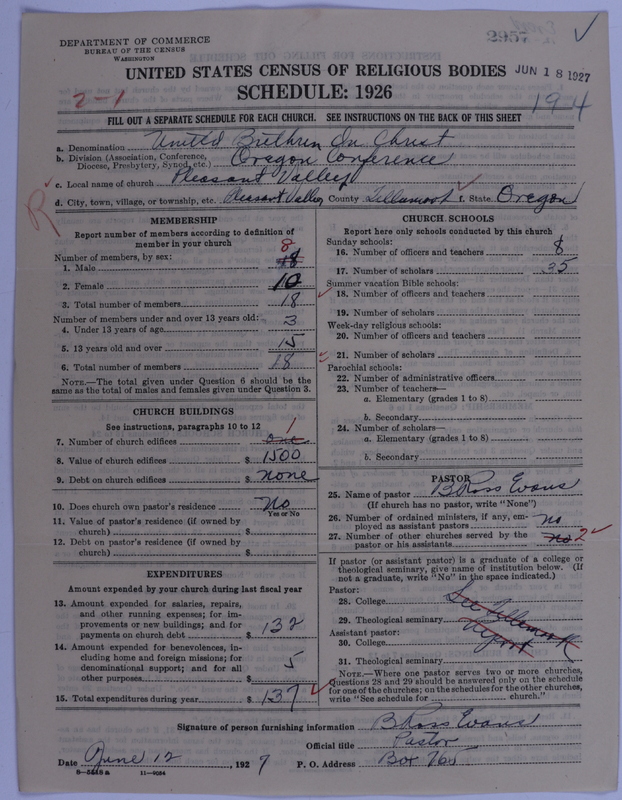 DEPARTMENT OF COMMERCE
BUREAU OF THE CENSUS
WASHINGTON
2957
UNITED STATES CENSUS OF RELIGIOUS BODIES
JUN 18 1927
SCHEDULE: 1926
2-1
194
FILL OUT A SEPARATE SCHEDULE FOR EACH CHURCH. SEE INSTRUCTIONS ON THE BACK OF THIS SHEET
a. Denomination United Brethren In Christ
b. Division (Association, Conference, Diocese, Presbytery, Synod, etc.) Oregon Conference
c. Local name of church Pleasant Valley
d. City, town, village, or township, etc. Pleasant Valley County Tillamook f. State Oregon
R
MEMBERSHIP
Report number of members according to definition of
member in your church
Number of members, by sex: 8
1. Male 18
2. Female 10
3. Total number of members 18
Number of members under and over 13 years old:
4. Under 13 years of age 3
5. 13 years old and over 15
6. Total number of members 18
NOTE.—The total given under Question 6 should be
same as the total of males and females given under Question 3.
CHURCH BUILDINGS
See instructions, paragraphs 10 to 12 1
7. Number of church edifices one
8. Value of church edifices $ 1500
9. Debt on church edifices $ none
10. Does church own pastor's residence No
Yes or No
11. Value of pastor's residence (if owned by
church) $
12. Debt on pastor's residence (if owned by
church) $
EXPENDITURES
Amount expended by your church during last fiscal year
13. Amount expended for salaries, repairs,
and other running expenses; for im-
provements or new buildings; and for
payments on church debt $ 132
14. Amount expended for benevolences, in-
cluding home and foreign missions; for
denominational support; and for all
other purposes $ 5
15. Total expenditures during year $ 137
CHURCH SCHOOLS
Report here only schools conducted by this church
Sunday schools:
16. Number of officers and teachers 8
17. Number of scholars 35
Summer vacation Bible schools:
18. Number of officers and teachers
19. Number of scholars
Week-day religious schools:
20. Number of officers and teachers
21. Number of scholars
Parochial schools:
22. Number of administrative officers
23. Number of teachers—
a. Elementary (grades 1 to 8)
b. Secondary
24. Number of scholars—
a. Elementary (grades 1 to 8)
b. Secondary
PASTOR
25. Name of pastor B Ross Evans
(If church has no pastor, write "None")
26. Number of ordained ministers, if any, em-
ployed as assistant pastors no
27. Number of other churches served by the
pastor or his assistants no 2
If pastor (or assistant pastor) is a graduate of a college or
theological seminary, give name of institution below. (If
not a graduate, write "No" in the space indicated.)
Pastor:
28. College See Tillamook
29. Theological seminary Report
Assistant pastor:
30. College
31. Theological seminary
NOTE.—Where one pastor serves two or more churches,
Questions 28 and 29 should be answered only on the schedule
for one of the churches; on the schedules for the other churches,
write "See schedule for church."
Signature of person furnishing information B Ross Evans
Official title Pastor
Date June 12, 1927 P. O. Address Box 765
8—5448 a 11—9034